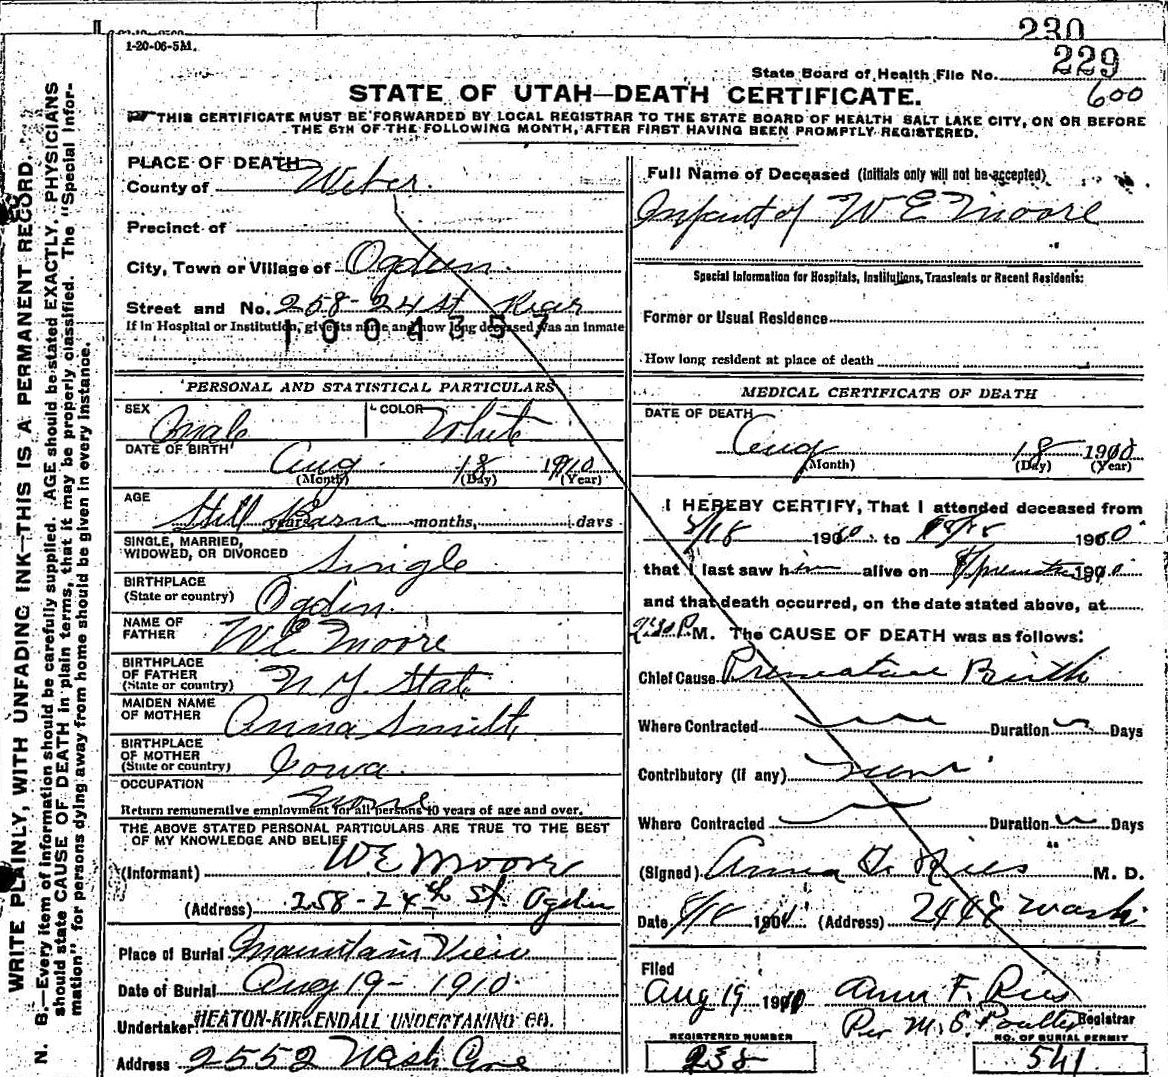 230
1-20-06-5M.
229
State Board of Health File No.
600
STATE OF UTAH—DEATH CERTIFICATE.
THIS CERTIFICATE MUST BE FORWARDED BY LOCAL REGISTRAR TO THE STATE BOARD OF HEALTH SALT LAKE CITY, ON OR BEFORE
THE 5TH OF THE FOLLOWING MONTH, AFTER FIRST HAVING BEEN PROMPTLY REGISTERED.
WRITE PLAINLY, WITH UNFADING INK—THIS IS A PERMANENT RECORD.
N. B.—Every item of information should be carefully supplied. AGE should be stated EXACTLY. PHYSICIANS
should state CAUSE OF DEATH in plain terms, that it may be properly classified. The "Special Infor-
mation" for persons dying away from home should be given in every instance.
PLACE OF DEATH
County of Weber
Precinct of
City, Town or Village of Ogden
Street and No. 258-24 St Rear
If in Hospital or Institution, give its name and how long deceased was an inmate
1004357
PERSONAL AND STATISTICAL PARTICULARS
SEX Male COLOR White
DATE OF BIRTH
Aug 18 1910
(Month) (Day) (Year)
AGE
Still Born years months, days
SINGLE, MARRIED,
WIDOWED, OR DIVORCED Single
BIRTHPLACE
(State or country) Ogden
NAME OF
FATHER W E Moore
BIRTHPLACE
OF FATHER
(State or country) N. Y. State
MAIDEN NAME
OF MOTHER Anna Smith
BIRTHPLACE
OF MOTHER
(State or country) Iowa
OCCUPATION
None
Return remunerative employment for all persons 10 years of age and over.
THE ABOVE STATED PERSONAL PARTICULARS ARE TRUE TO THE BEST
OF MY KNOWLEDGE AND BELIEF
(Informant) W E Moore
(Address) 258-24th St. Ogden
Place of Burial Mountain View
Date of Burial Aug 19- 1910
Undertaker HEATON-KIRKENDALL UNDERTAKING CO.
Address 2552 Wash Ave
Full Name of Deceased (Initials only will not be accepted)
Infant of W E Moore
Special Information for Hospitals, Institutions, Transients or Recent Residents:
Former or Usual Residence
How long resident at place of death
MEDICAL CERTIFICATE OF DEATH
DATE OF DEATH
Aug 18 1910
(Month) (Day) (Year)
I HEREBY CERTIFY, That I attended deceased from
8/18 1910 to 8/18 1910
that I last saw him alive on 1910
and that death occurred, on the date stated above, at
2:30 P. M. The CAUSE OF DEATH was as follows:
Chief Cause Premature Birth
Where Contracted Duration Days
Contributory (if any) None
Where Contracted Duration Days
(Signed) Anna F. Ries M. D.
Date 8/18 (Address) 2448 Wash.
Filed
Aug 19 1910 Ann F. Ries
Per M. E. Poulter Registrar
REGISTERED NUMBER
238
NO. OF BURIAL PERMIT
541